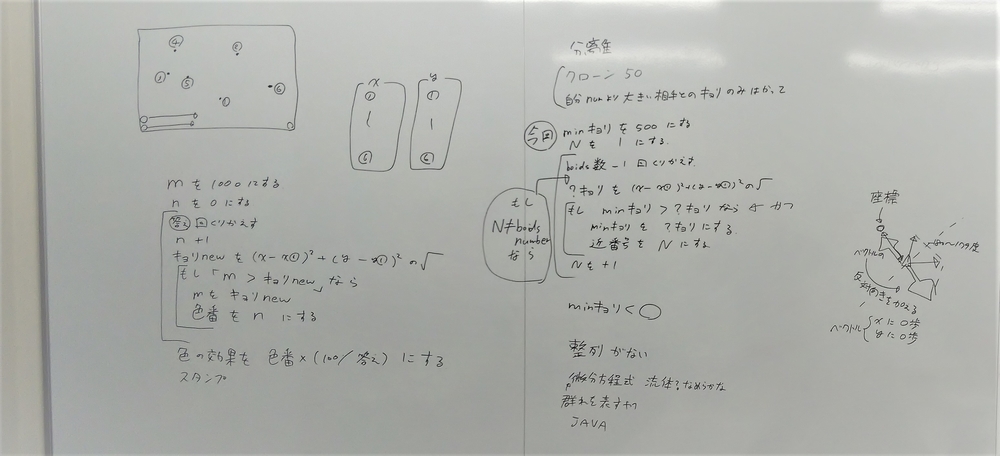 ④
②
① ⑤
⑥
x
①
⑥
y
①
⑥
mを1000にする
nを0にする
答え回くりかえす
n+1
キョリnewを(x-x①)²+(y-y①)²の√
もし「m>キョリnew」なら
mをキョリnew
色番をnにする
色の効果を 色番×(100/答え)にする
スタンプ
分離性
クローン50
自分numより大きい相手とのキョリのみはかって
今回
minキョリを500にする
Nを1にする
boids数-1回くりかえす
?キョリを(x-x①)²+(y-y①)²の√
もし minキョリ>?キョリなら かつ
minキョリを?キョリにする
近番号をNにする
Nを+1
もし
N≠boids
number
なら
minキョリ<○
整列がない
微分方程式 流体?なめらかな
群れを表すやつ
JAVA
座標
ベクトルの
反対向きを加える
ベクトル
xに○歩
yに○歩